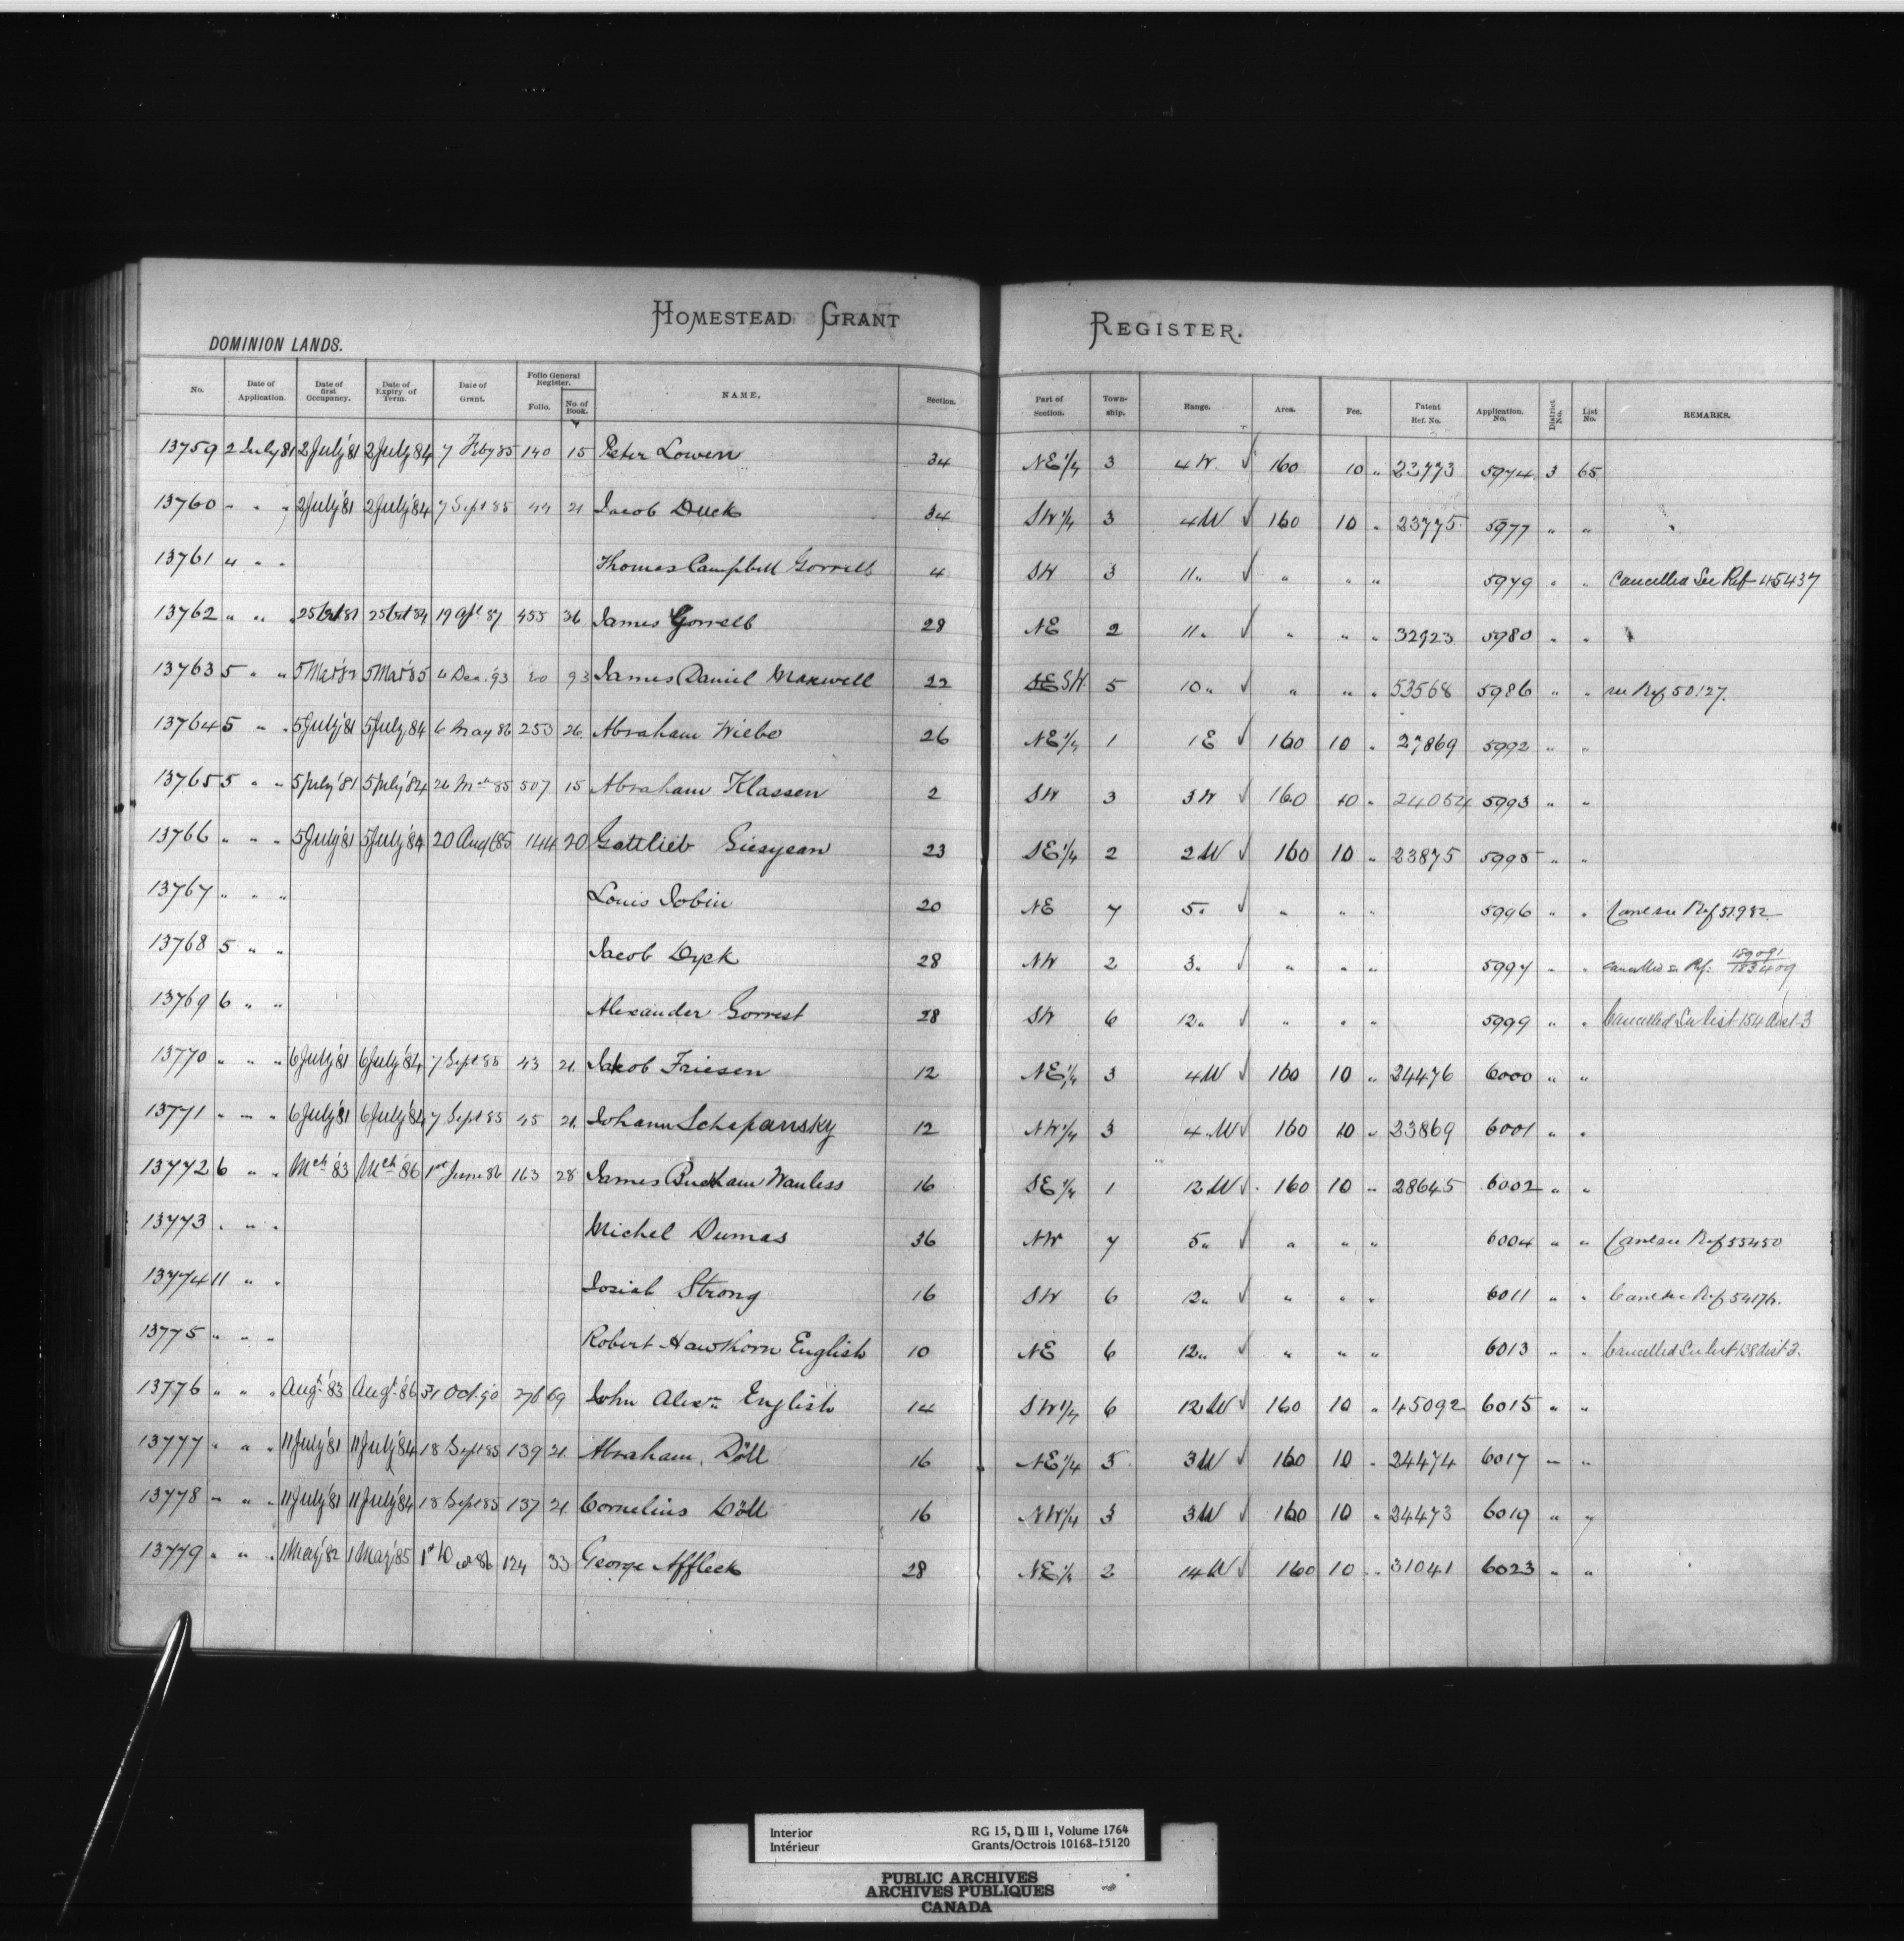 HOMESTEAD GRANT REGISTER.
DOMINION LANDS.
No. Date of Application. Date of first Occupancy. Date of Expiry of Term. Date of Grant. Folio General Register. Folio. No. of Book. NAME. Section. Part of Section. Township. Range. Area. Fee. Patent Ref. No. Application. No. District No. List No. REMARKS.
13759 2 July 81 2 July '81 2 July 84 7 Feby 85 140 15 Peter Lowen 34 NE 1/4 3 4 W. √ 160 10 " 23773 5974 3 65
13760 " " " 2 July '81 2 July '84 7 Sept 85 44 21 Jacob Duck 34 SW 1/4 3 4W √ 160 10 " 23775 5977 " "
13761 " " " Thomas Campbell Gorrell 4 SW 3 11 " √ " " " 5979 " " Cancelled See Ref 45437
13762 " " " 25 Oct 81 25 Oct 84 19 Apl 87 455 36 James Gorrell 28 NE 2 11 " √ " " " 32923 5980 " "
13763 5 " " 5 Mar 82 5 Mar '85 4 Dec. '93 20 93 James Daniel Maxwell 22 SE SW 5 10 " √ " " " 53568 5986 " " see Ref 50127.
13764 5 " " 5 July '81 5 July '84 6 May 86 253 26 Abraham Wiebe 26 NE 1/4 1 1 E √ 160 10 " 27869 5992 " "
13765 5 " " 5 July '81 5 July '84 26 Mch 85 507 15 Abraham Klassen 2 SW 3 3 W √ 160 10 " 24054 5993 " "
13766 " " " 5 July '81 5 July '84 20 Aug 85 144 20 Gottlieb 23 SE 1/4 2 2 W √ 160 10 " 23875 5995 " "
13767 " " " Louis Jobin 20 NE 7 5 " √ " " " 5996 " " Canc see Ref 51982
13768 5 " " Jacob Dyck 28 NW 2 3 " √ " " " 5997 " " cancelled see Ref: 189091 183409
13769 6 " " Alexander Gorrest 28 SW 6 12 " √ " " " 5999 " " Cancelled See list 154 dist 3
13770 " " " 6 July '81 6 July '84 7 Sept 85 43 21 Jakob Friesen 12 NE 1/4 3 4 W √ 160 10 " 24476 6000 " "
13771 " " " 6 July '81 6 July '84 7 Sept 85 45 21 Johann Schapansky 12 NW 1/4 3 4 W √ 160 10 " 23869 6001 " "
13772 6 " " Mch '83 Mch '86 1st June 86 163 28 James Buckham Wanless 16 SE 1/4 1 12 W √ 160 10 " 28645 6002 " "
13773 " " " Michel Dumas 36 NW 7 5 " √ " " " 6004 " " Canc see Ref 55450
13774 11 " " Josiah Strong 16 SW 6 12 " √ " " " 6011 " " Canc see Ref 54174.
13775 " " " Robert Hawthorn English 10 NE 6 12 " √ " " " 6013 " " Cancelled See list 138 dist 3.
13776 " " " Augt '83 Augt '86 31 Oct. 90 276 69 John Alexr English 14 SW 1/4 6 12 W √ 160 10 " 45092 6015 " "
13777 " " " 11 July '81 11 July '84 18 Sept 85 139 21 Abraham Döll 16 NE 1/4 3 3 W √ 160 10 " 24474 6017 " "
13778 " " " 11 July '81 11 July '84 18 Sept 85 137 21 Cornelius Döll 16 NW 1/4 3 3 W √ 160 10 " 24473 6019 " "
13779 " " " 1 May '82 1 May '85 124 33 George Affleck 28 NE 1/4 2 14 W √ 160 10 " 31041 6023 " "
Interior RG 15, D III 1, Volume 1764
Intérieur Grants/Octrois 10168-15120
PUBLIC ARCHIVES
ARCHIVES PUBLIQUES
CANADA